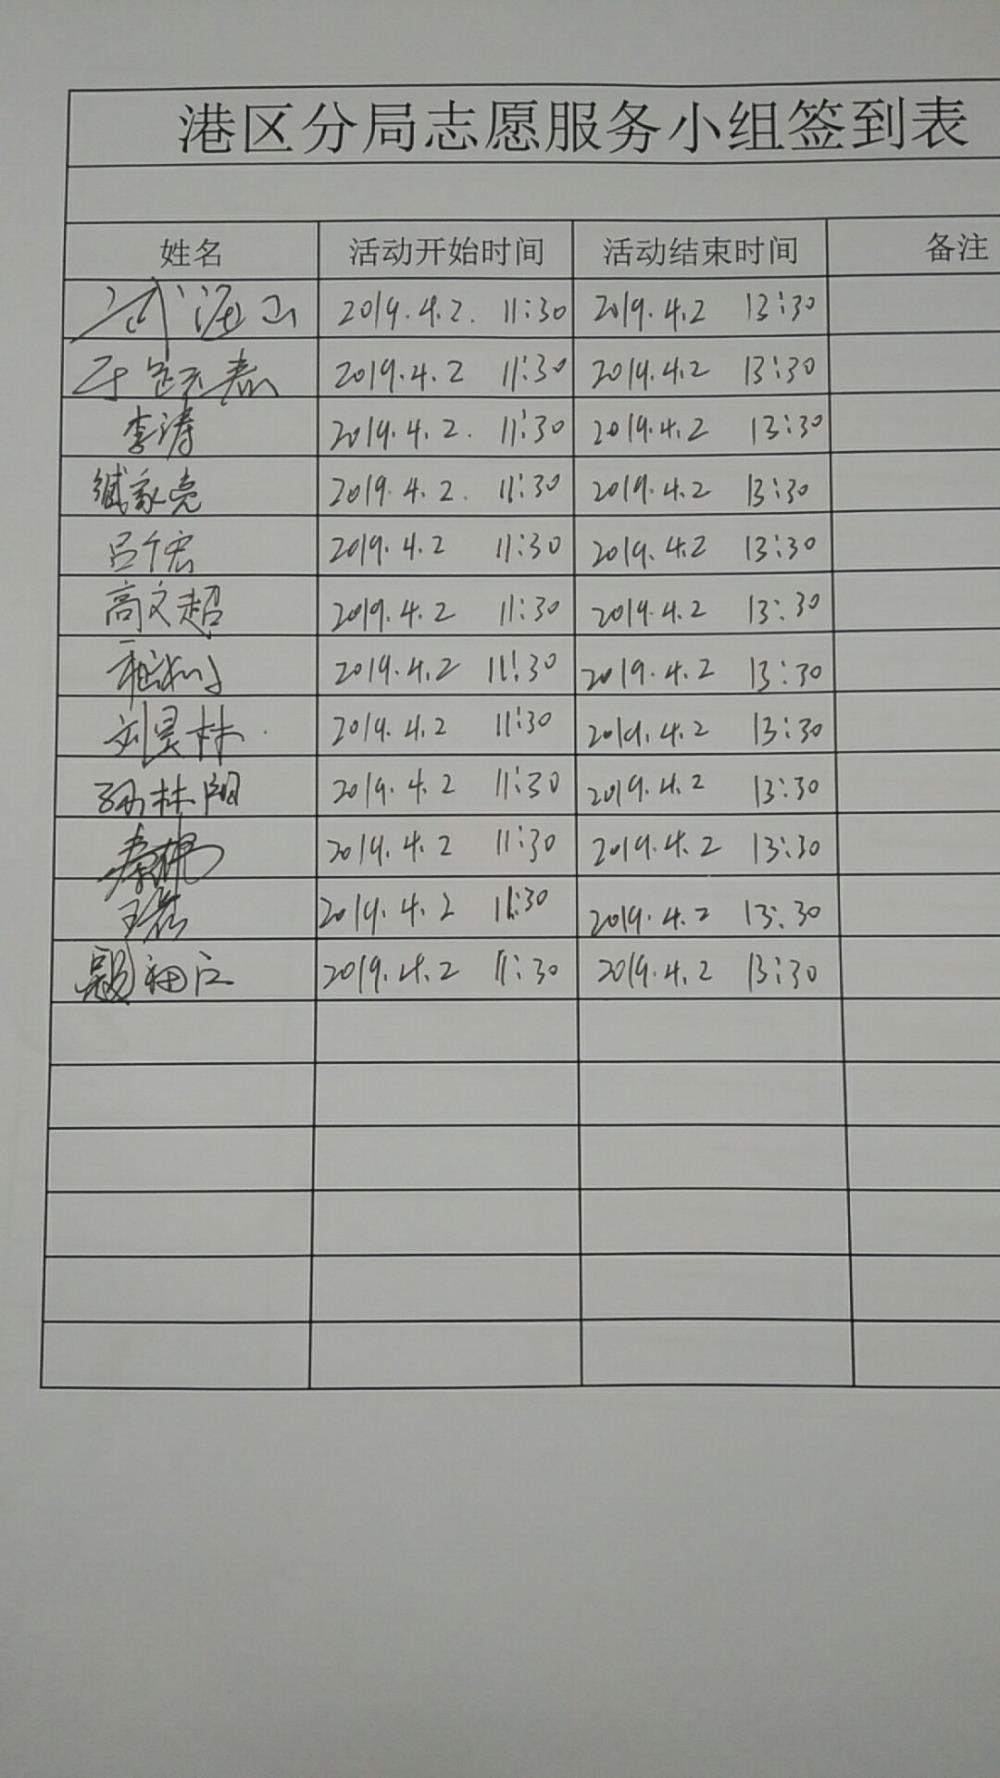 港区分局志愿服务小组签到表
姓名 活动开始时间 活动结束时间 备注
2019.4.2. 11:30 2019.4.2 13:30
2019.4.2 11:30 2019.4.2 13:30
李涛 2019.4.2. 11:30 2019.4.2 13:30
臧家亮 2019.4.2. 11:30 2019.4.2 13:30
吕个宏 2019.4.2 11:30 2019.4.2 13:30
高文超 2019.4.2 11:30 2019.4.2 13:30
2019.4.2 11:30 2019.4.2 13:30
刘昊林 2019.4.2 11:30 2019.4.2 13:30
孙林阳 2019.4.2 11:30 2019.4.2 13:30
2019.4.2 11:30 2019.4.2 13:30
2019.4.2 11:30 2019.4.2 13:30
2019.4.2 11:30 2019.4.2 13:30